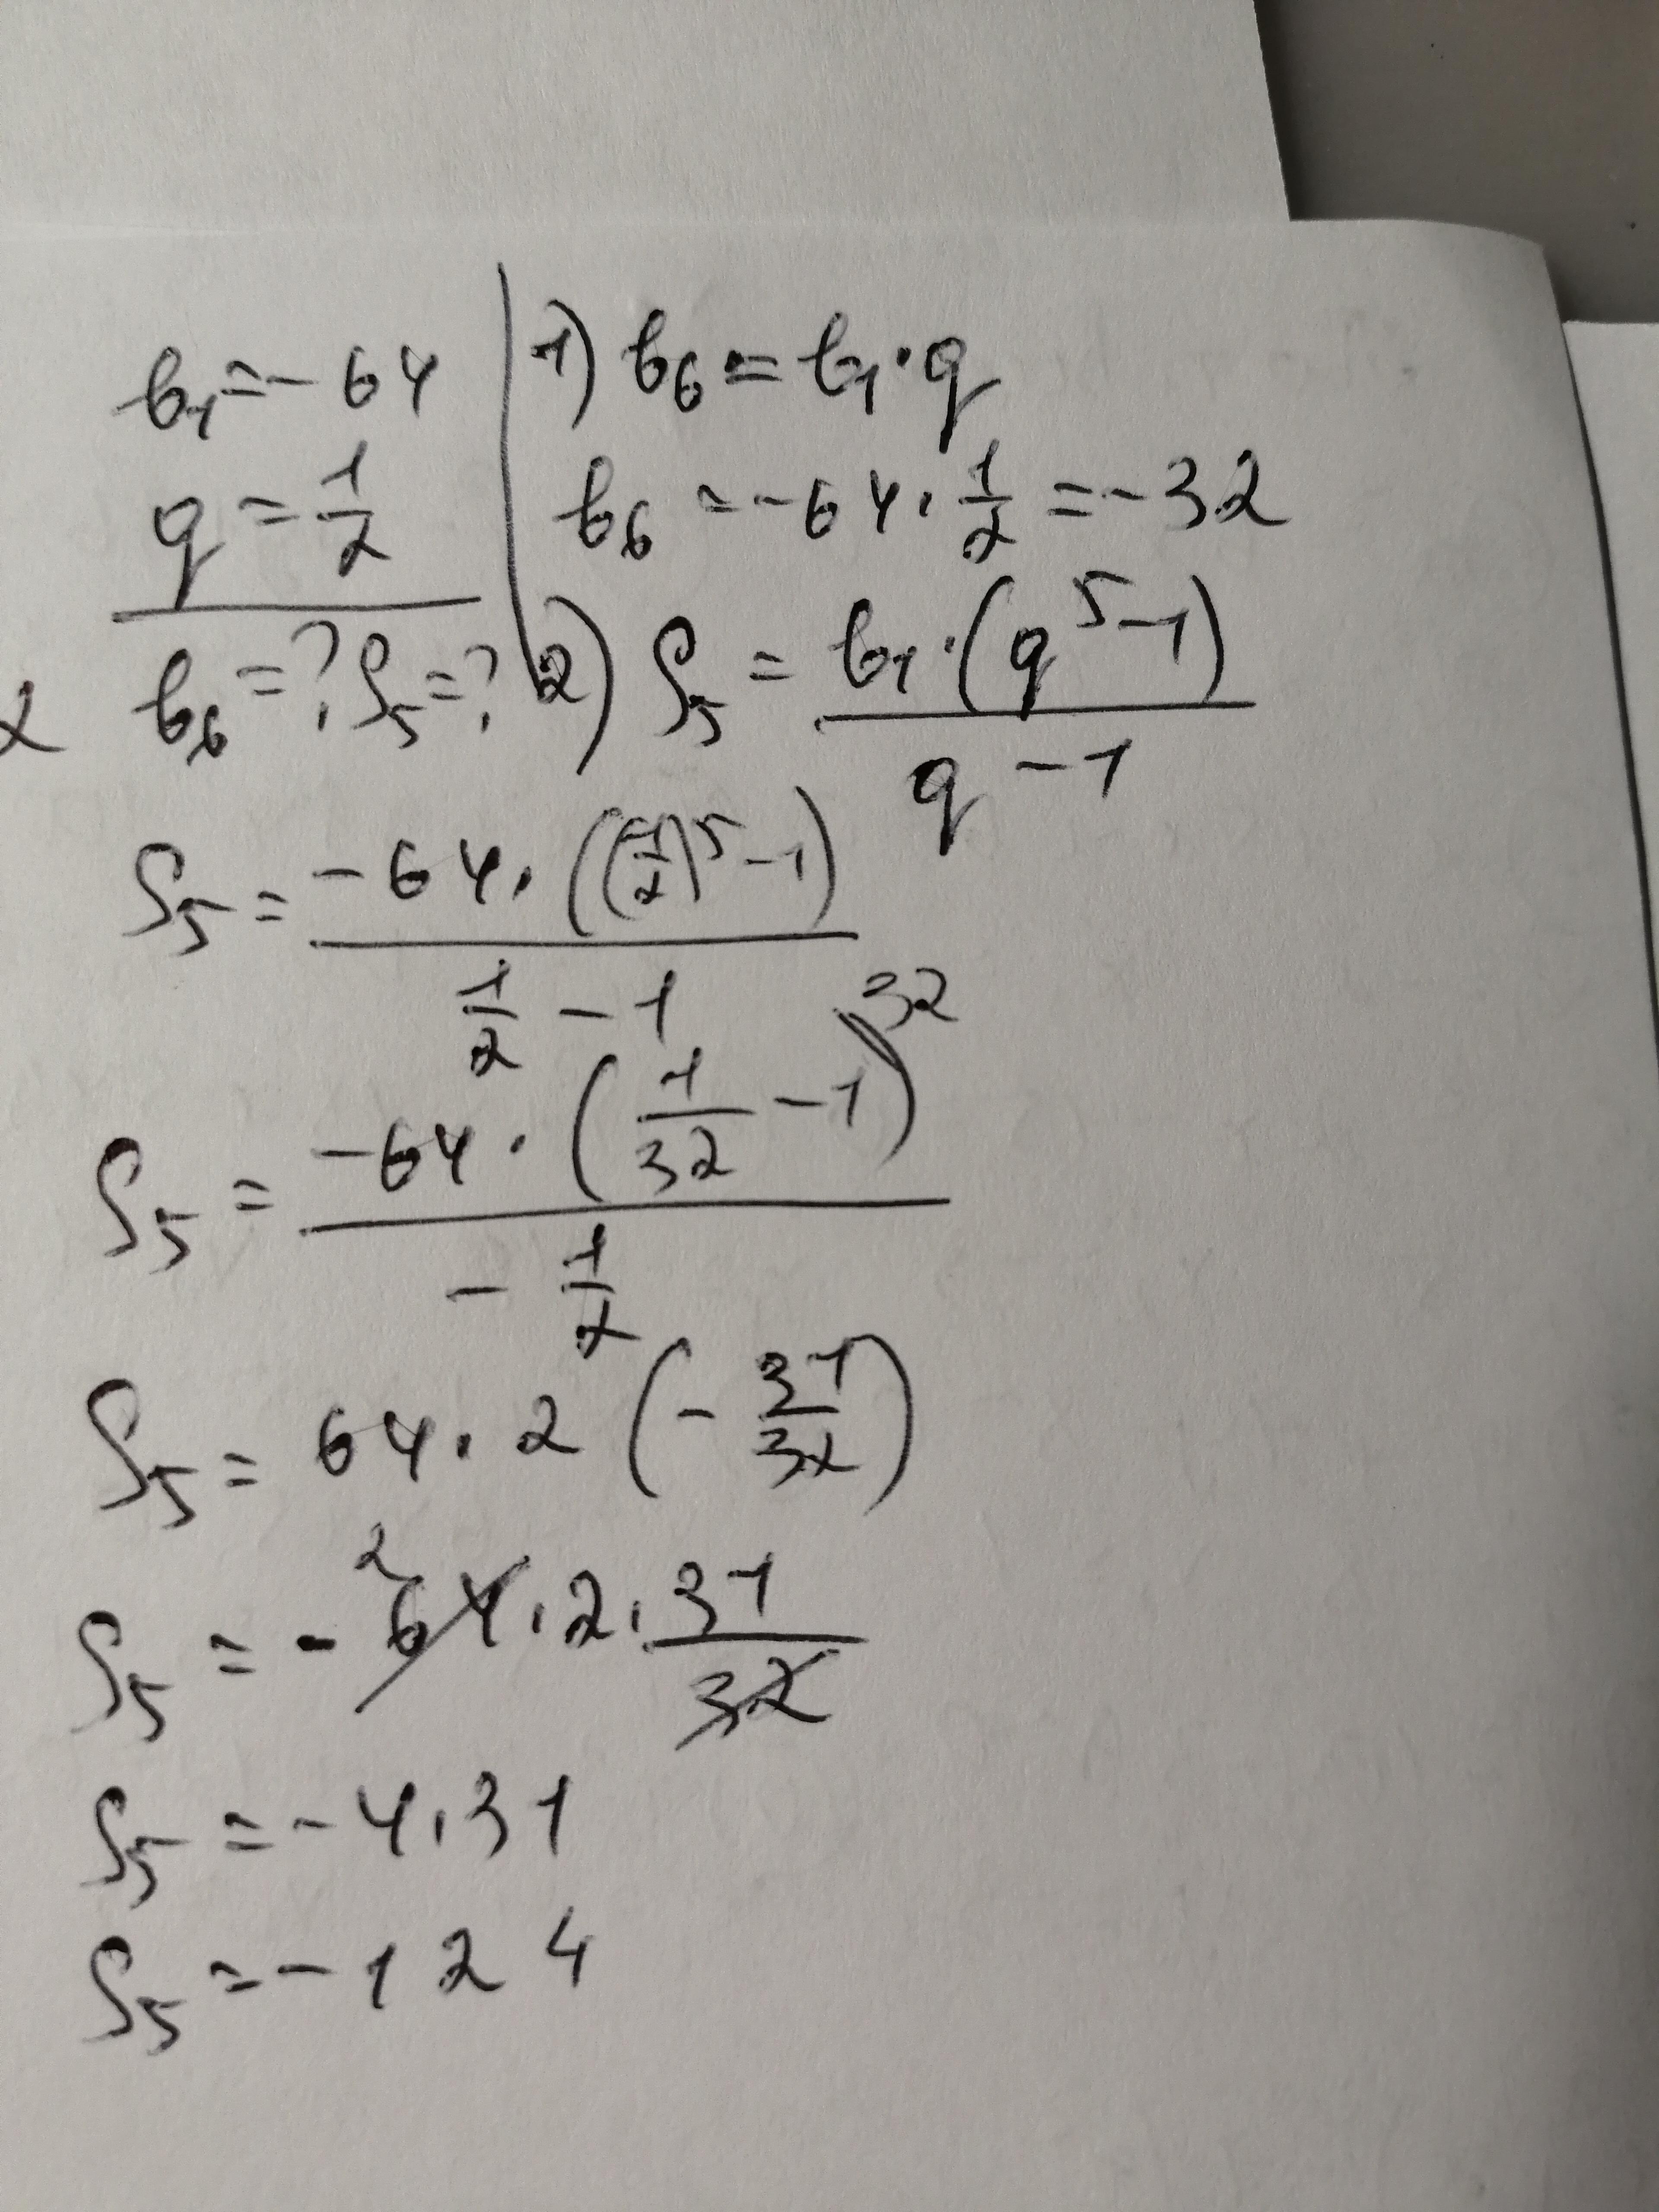 b₁ = -64
q = 1/2
b₆ = ? S₅ = ?
1) b₆ = b₁ · q
b₆ = -64 · 1/2 = -32
2) S₅ = b₁ · (q⁵ - 1) / q - 1
S₅ = -64 · ((1/2)⁵ - 1) / 1/2 - 1
32
S₅ = -64 · (1/32 - 1) / - 1/2
S₅ = 64 · 2 (- 31/32)
2
S₅ = - 64 · 2 · 31/32
S₅ = -4 · 31
S₅ = -124